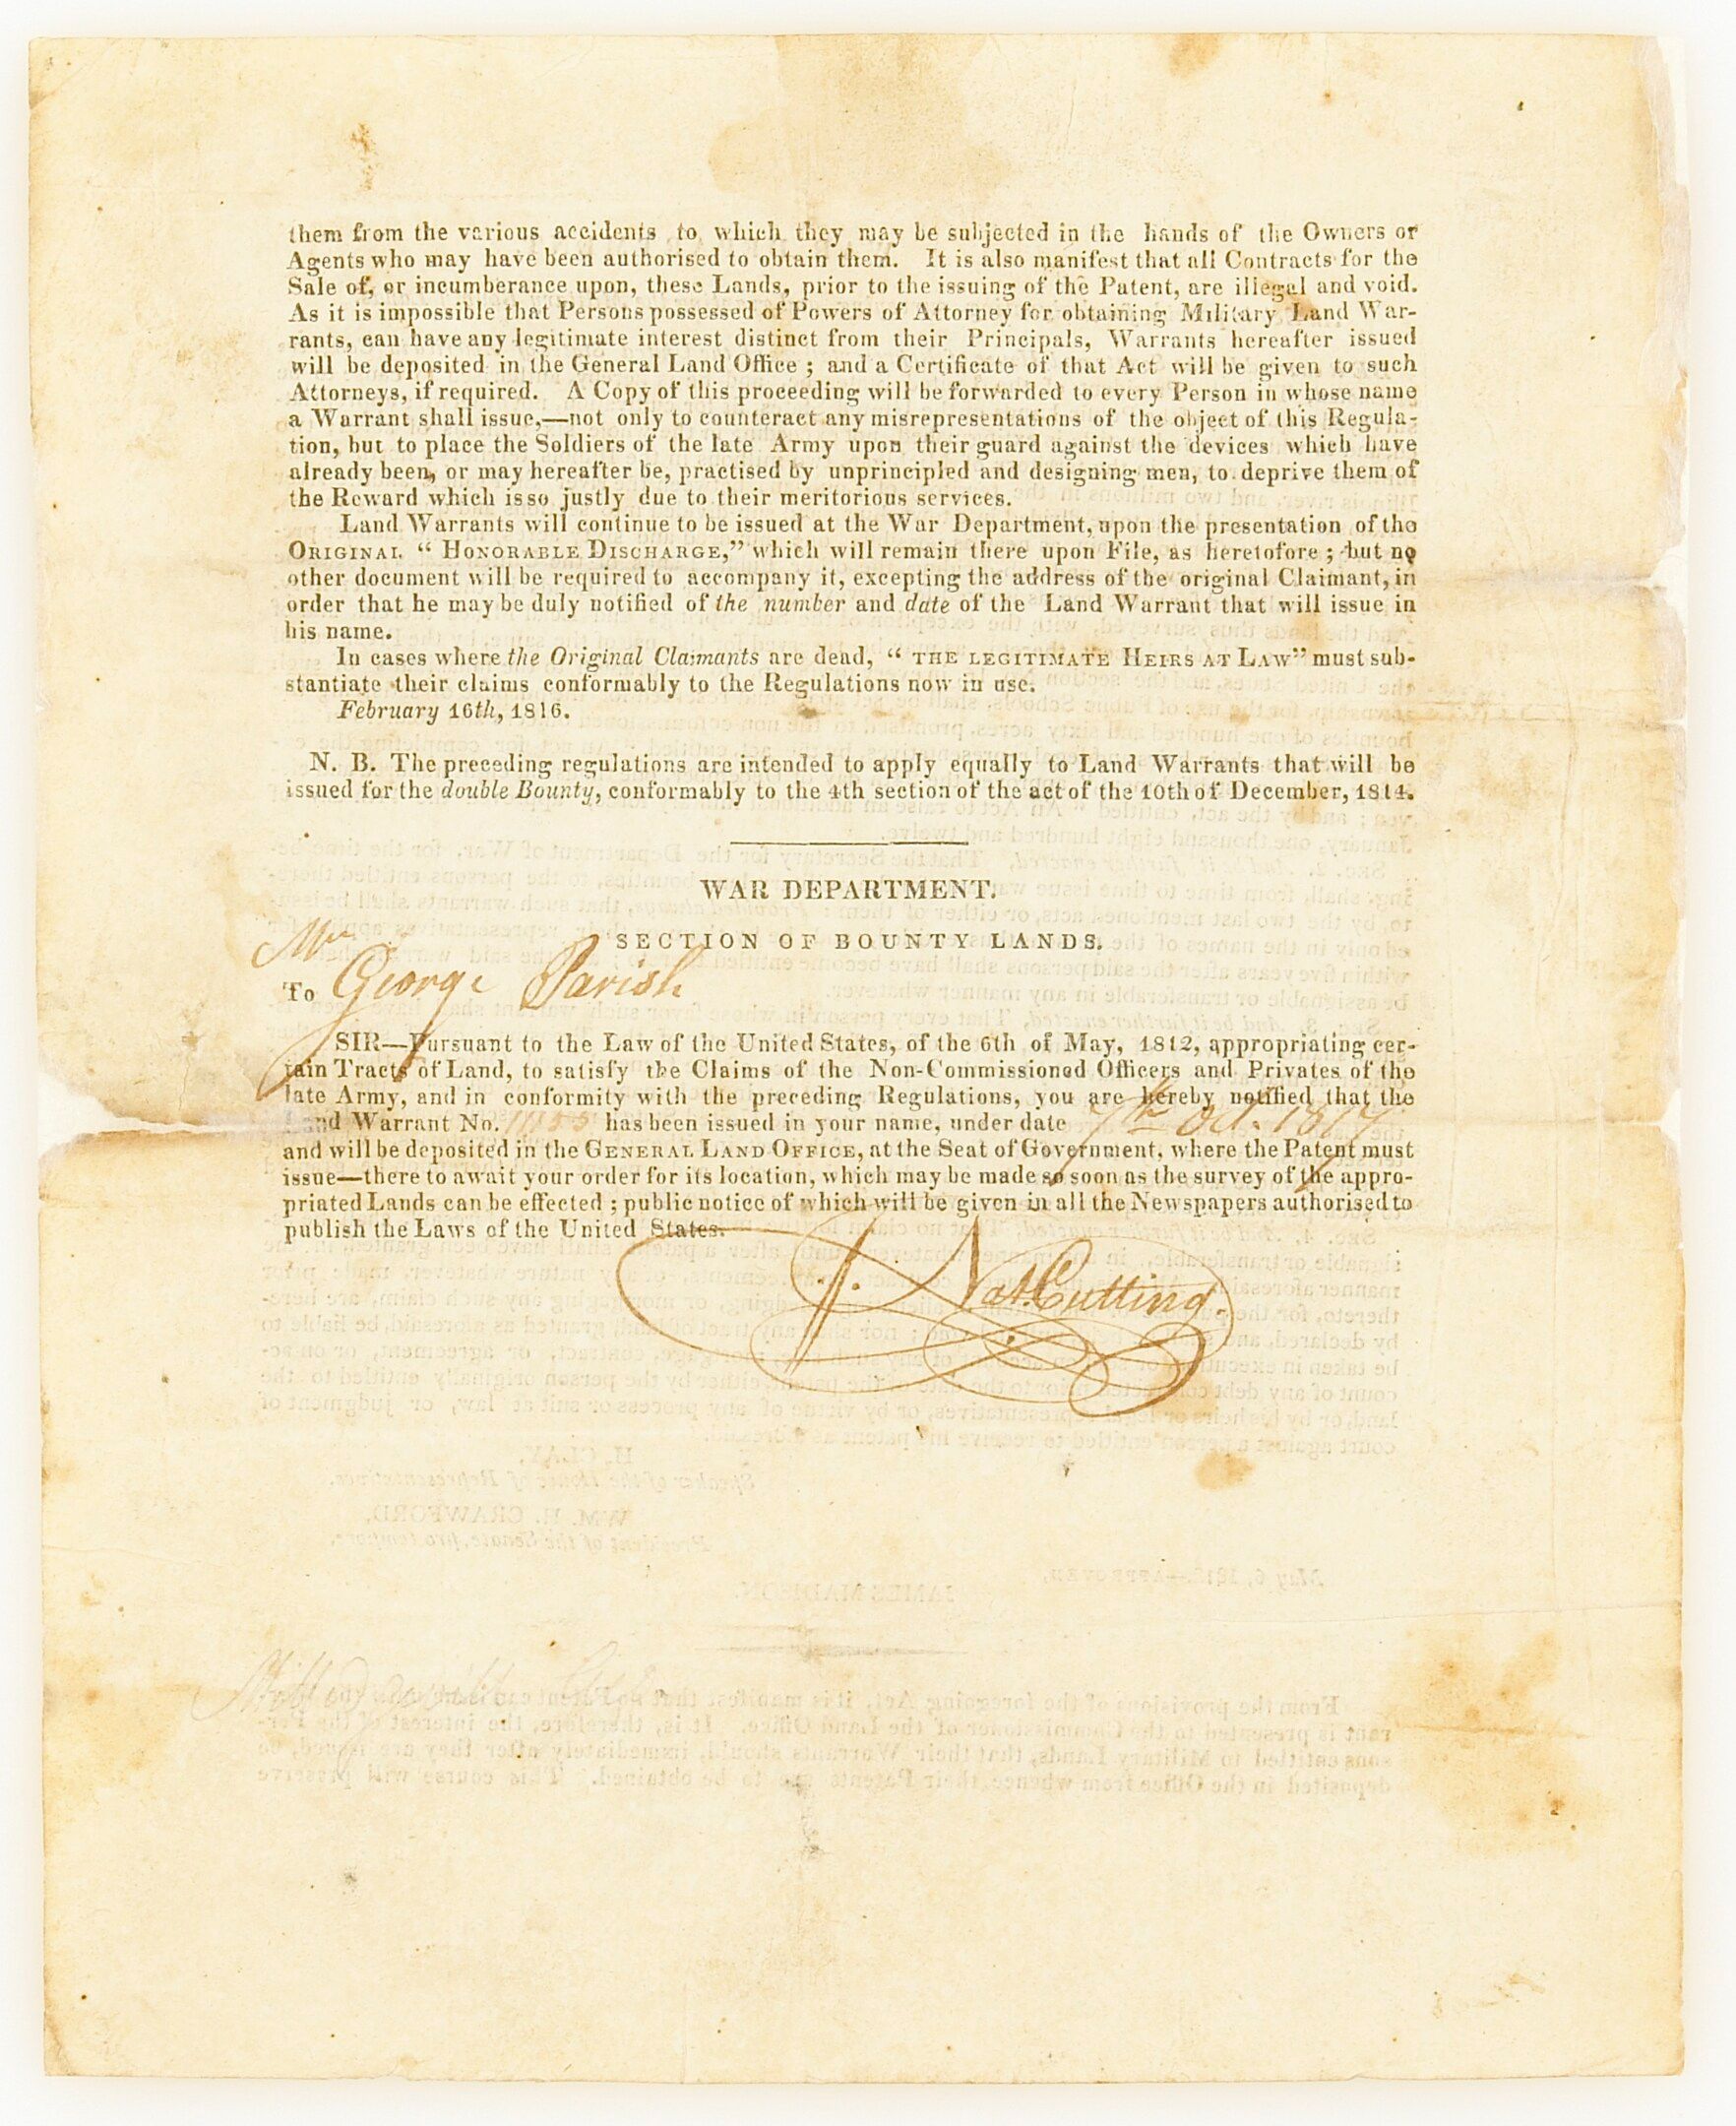 them from the various accidents to which they may be subjected in the hands of the Owners or
Agents who may have been authorised to obtain them. It is also manifest that all Contracts for the
Sale of, or incumberance upon, these Lands, prior to the issuing of the Patent, are illegal and void.
As it is impossible that Persons possessed of Powers of Attorney for obtaining Military Land War-
rants, can have any legitimate interest distinct from their Principals, Warrants hereafter issued
will be deposited in the General Land Office ; and a Certificate of that Act will be given to such
Attorneys, if required. A Copy of this proceeding will be forwarded to every Person in whose name
a Warrant shall issue,—not only to counteract any misrepresentations of the object of this Regula-
tion, but to place the Soldiers of the late Army upon their guard against the devices which have
already been, or may hereafter be, practised by unprincipled and designing men, to deprive them of
the Reward which is so justly due to their meritorious services.
Land Warrants will continue to be issued at the War Department, upon the presentation of the
ORIGINAL “ HONORABLE DISCHARGE,” which will remain there upon File, as heretofore ; but no
other document will be required to accompany it, excepting the address of the original Claimant, in
order that he may be duly notified of the number and date of the Land Warrant that will issue in
his name.
In cases where the Original Claimants are dead, “ THE LEGITIMATE HEIRS AT LAW” must sub-
stantiate their claims conformably to the Regulations now in use.
February 16th, 1816.
N. B. The preceding regulations are intended to apply equally to Land Warrants that will be
issued for the double Bounty, conformably to the 4th section of the act of the 10th of December, 1814.
WAR DEPARTMENT.
SECTION OF BOUNTY LANDS.
Mr
To George Parish
SIR—Pursuant to the Law of the United States, of the 6th of May, 1812, appropriating cer-
tain Tracts of Land, to satisfy the Claims of the Non-Commissioned Officers and Privates of the
late Army, and in conformity with the preceding Regulations, you are hereby notified that the
Land Warrant No. has been issued in your name, under date 7th Oct. 1817
and will be deposited in the GENERAL LAND OFFICE, at the Seat of Government, where the Patent must
issue—there to await your order for its location, which may be made so soon as the survey of the appro-
priated Lands can be effected ; public notice of which will be given in all the Newspapers authorised to
publish the Laws of the United States.
Nat. Cutting.